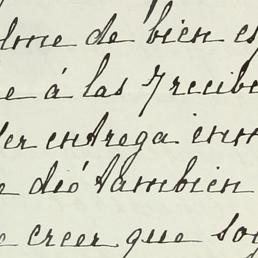 lme de bien es
e á las 7 recibe
er entrega inm
e dió tambien
e creer que soy